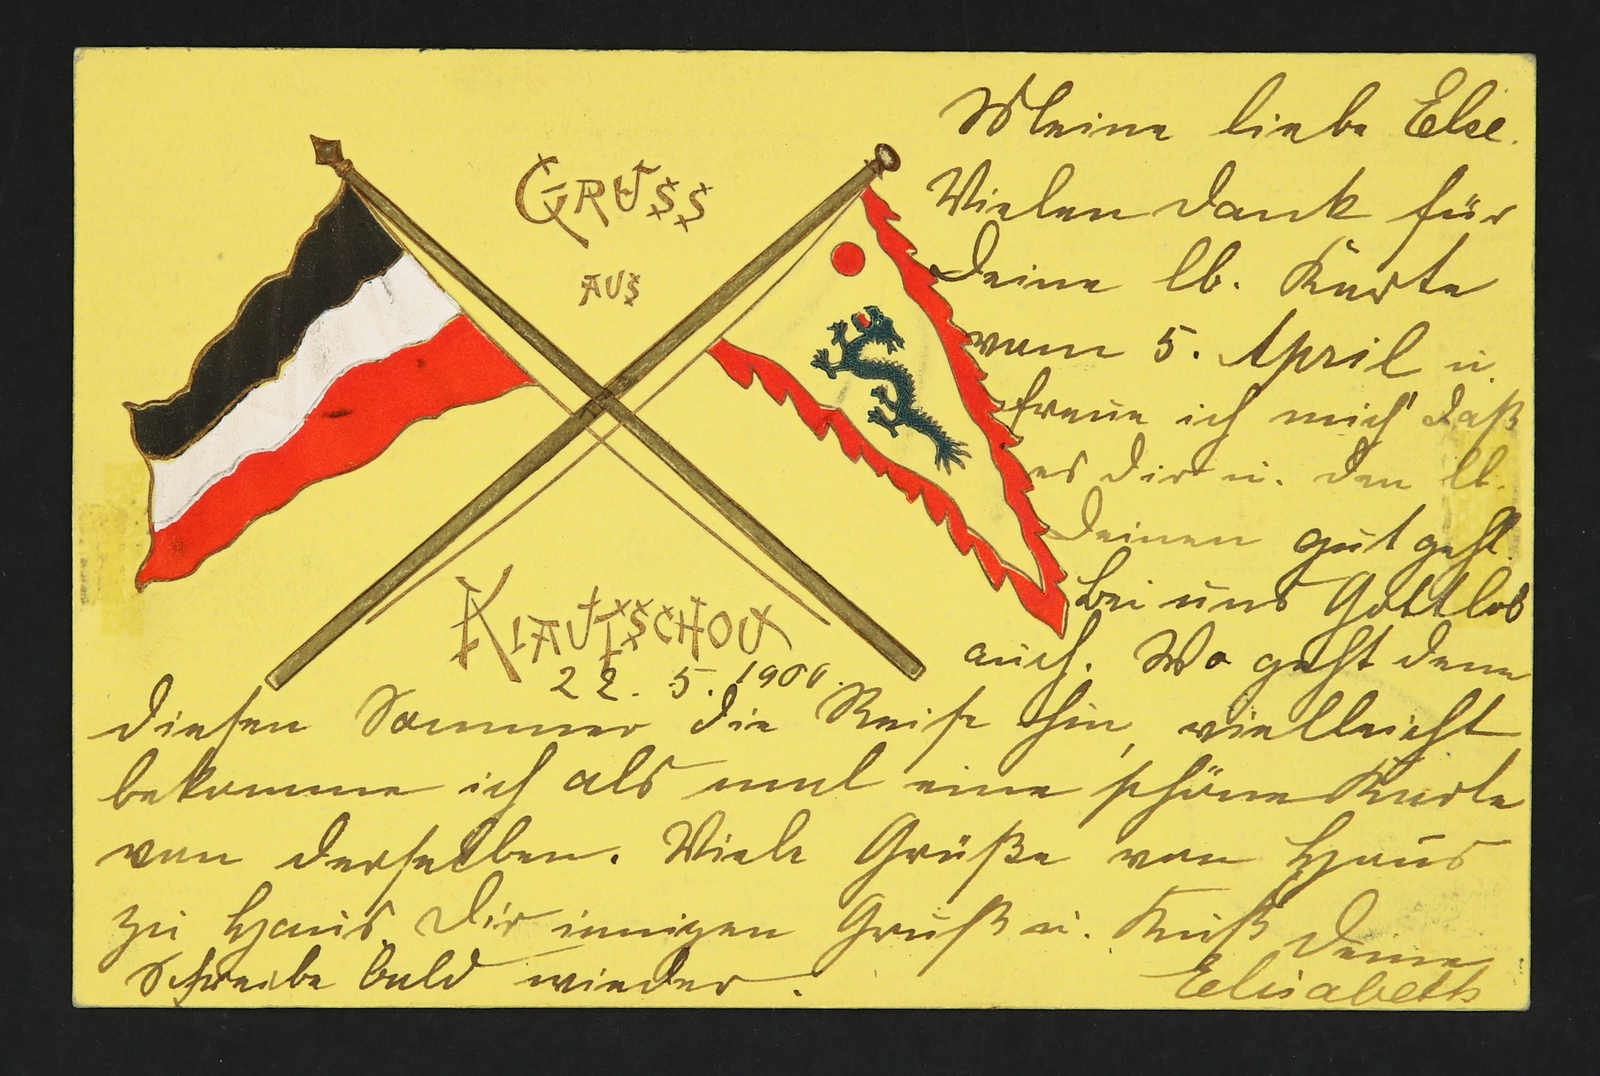 GRUSS
AUS
KIAUTSCHOU
22. 5. 1900.
Meine liebe Else.
Vielen Dank für
Deine lb. Karte
vom 5. April u.
freue ich mich daß
es dir u. den lb.
Deinen gut geht.
Bei uns Gottlob
auch. Wo geht denn
diesen Sommer die Reise hin, vielleicht
bekomme ich als mal eine schöne Karte
von derselben. Viele Grüße von Haus
zu Haus Dir innigen Gruß u. Kuß Deine
Schreibe bald wieder. Elisabeth